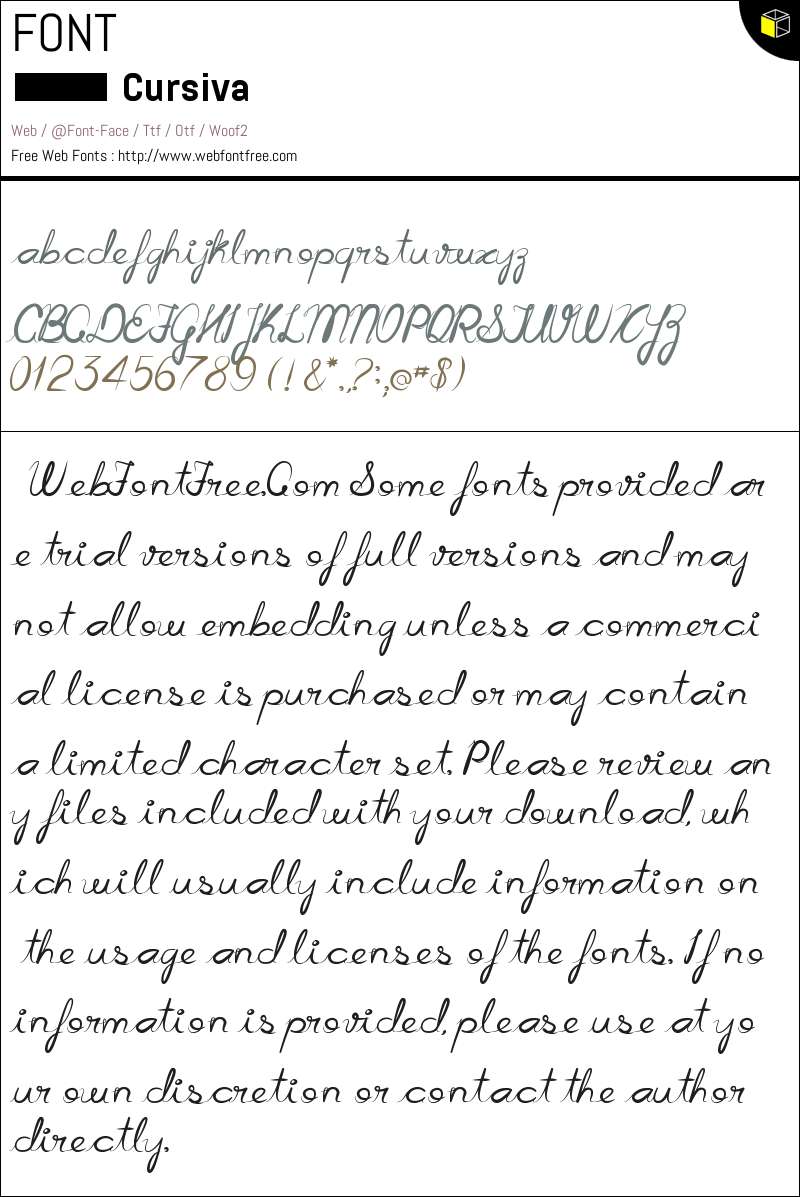 FONT
Cursiva
Web / @Font-Face / Ttf / Otf / Woof2
Free Web Fonts : http://www.webfontfree.com
abcdefghijklmnopqrstuvwxyz
CBCDEFGHIJKLMNOPQRSTUVWXYZ
0123456789 (!&*.,?:;@#$)
WebFontFree.Com Some fonts provided ar
e trial versions of full versions and may
not allow embedding unless a commerci
al license is purchased or may contain
a limited character set. Please review an
y files included with your download, wh
ich will usually include information on
the usage and licenses of the fonts. If no
information is provided, please use at yo
ur own discretion or contact the author
directly.